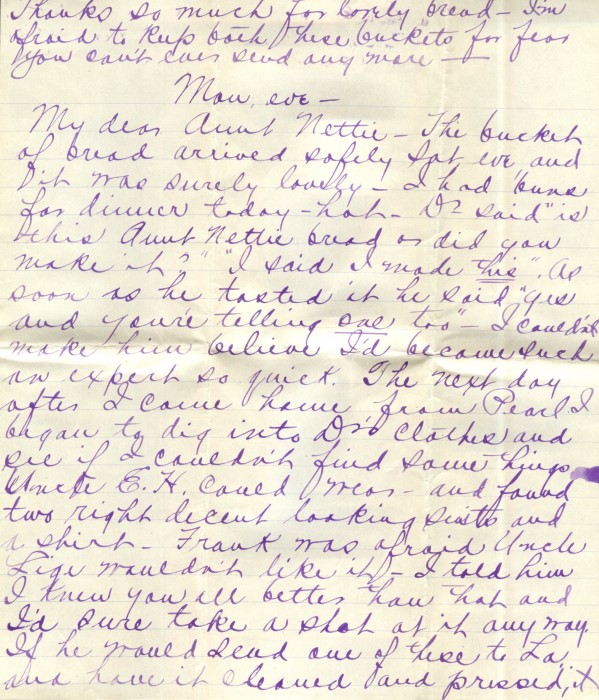 Thanks so much for lovely bread – I'm
afraid to keep both these buckets for fear
you can't ever send any more –
Mon, eve –
My dear Aunt Nettie – The bucket
of bread arrived safely Sat, eve and
it was surely lovely – I had "buns
for dinner today – hot – Dr said "is
this Aunt Nettie bread or did you
make it?" "I said I made this". As
soon as he tasted it he said "yes
and you're telling one too" – I couldn't
make him believe I'd become such
an expert so quick. The next day
after I come home from Pearl I
began to dig into Dr's clothes and
see if I couldn't find some things
Uncle E. H. could wear – and found
two right decent looking suits and
a shirt – Frank was afraid Uncle
Lige wouldn't like it – I told him
I knew you all better than that and
I'd sure take a shot at it any way.
If he would send one of these to La,
and have it cleaned and pressed, it